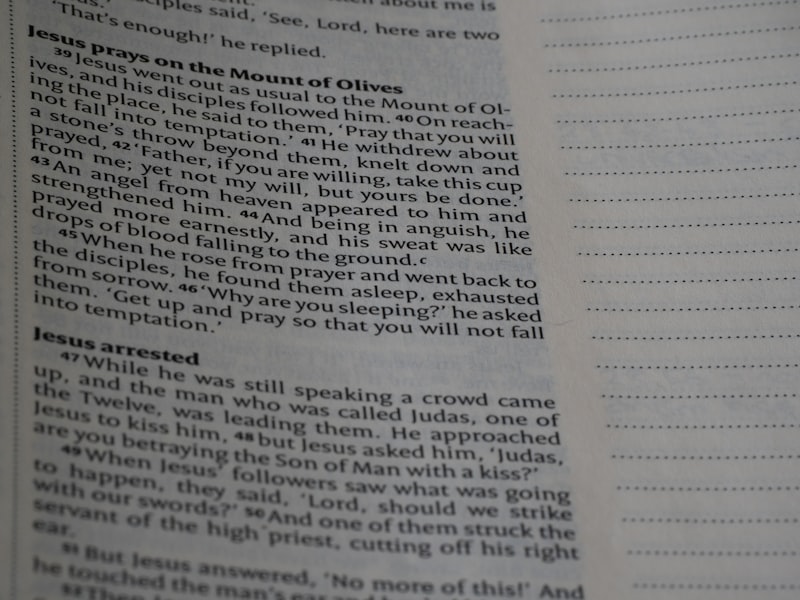 about me is
disciples said, 'See, Lord, here are two
'That's enough!' he replied.
Jesus prays on the Mount of Olives
39 Jesus went out as usual to the Mount of Ol-
ives, and his disciples followed him. 40 On reach-
ing the place, he said to them, 'Pray that you will
not fall into temptation.' 41 He withdrew about
a stone's throw beyond them, knelt down and
prayed, 42 'Father, if you are willing, take this cup
from me; yet not my will, but yours be done.'
43 An angel from heaven appeared to him and
strengthened him. 44 And being in anguish, he
prayed more earnestly, and his sweat was like
drops of blood falling to the ground.c
45 When he rose from prayer and went back to
the disciples, he found them asleep, exhausted
from sorrow. 46 'Why are you sleeping?' he asked
them. 'Get up and pray so that you will not fall
into temptation.'
Jesus arrested
47 While he was still speaking a crowd came
up, and the man who was called Judas, one of
the Twelve, was leading them. He approached
Jesus to kiss him, 48 but Jesus asked him, 'Judas,
are you betraying the Son of Man with a kiss?'
49 When Jesus' followers saw what was going
to happen, they said, 'Lord, should we strike
with our swords?' 50 And one of them struck the
servant of the high priest, cutting off his right
ear.
51 But Jesus answered, 'No more of this!' And
he touched the man's ear and
52 Then